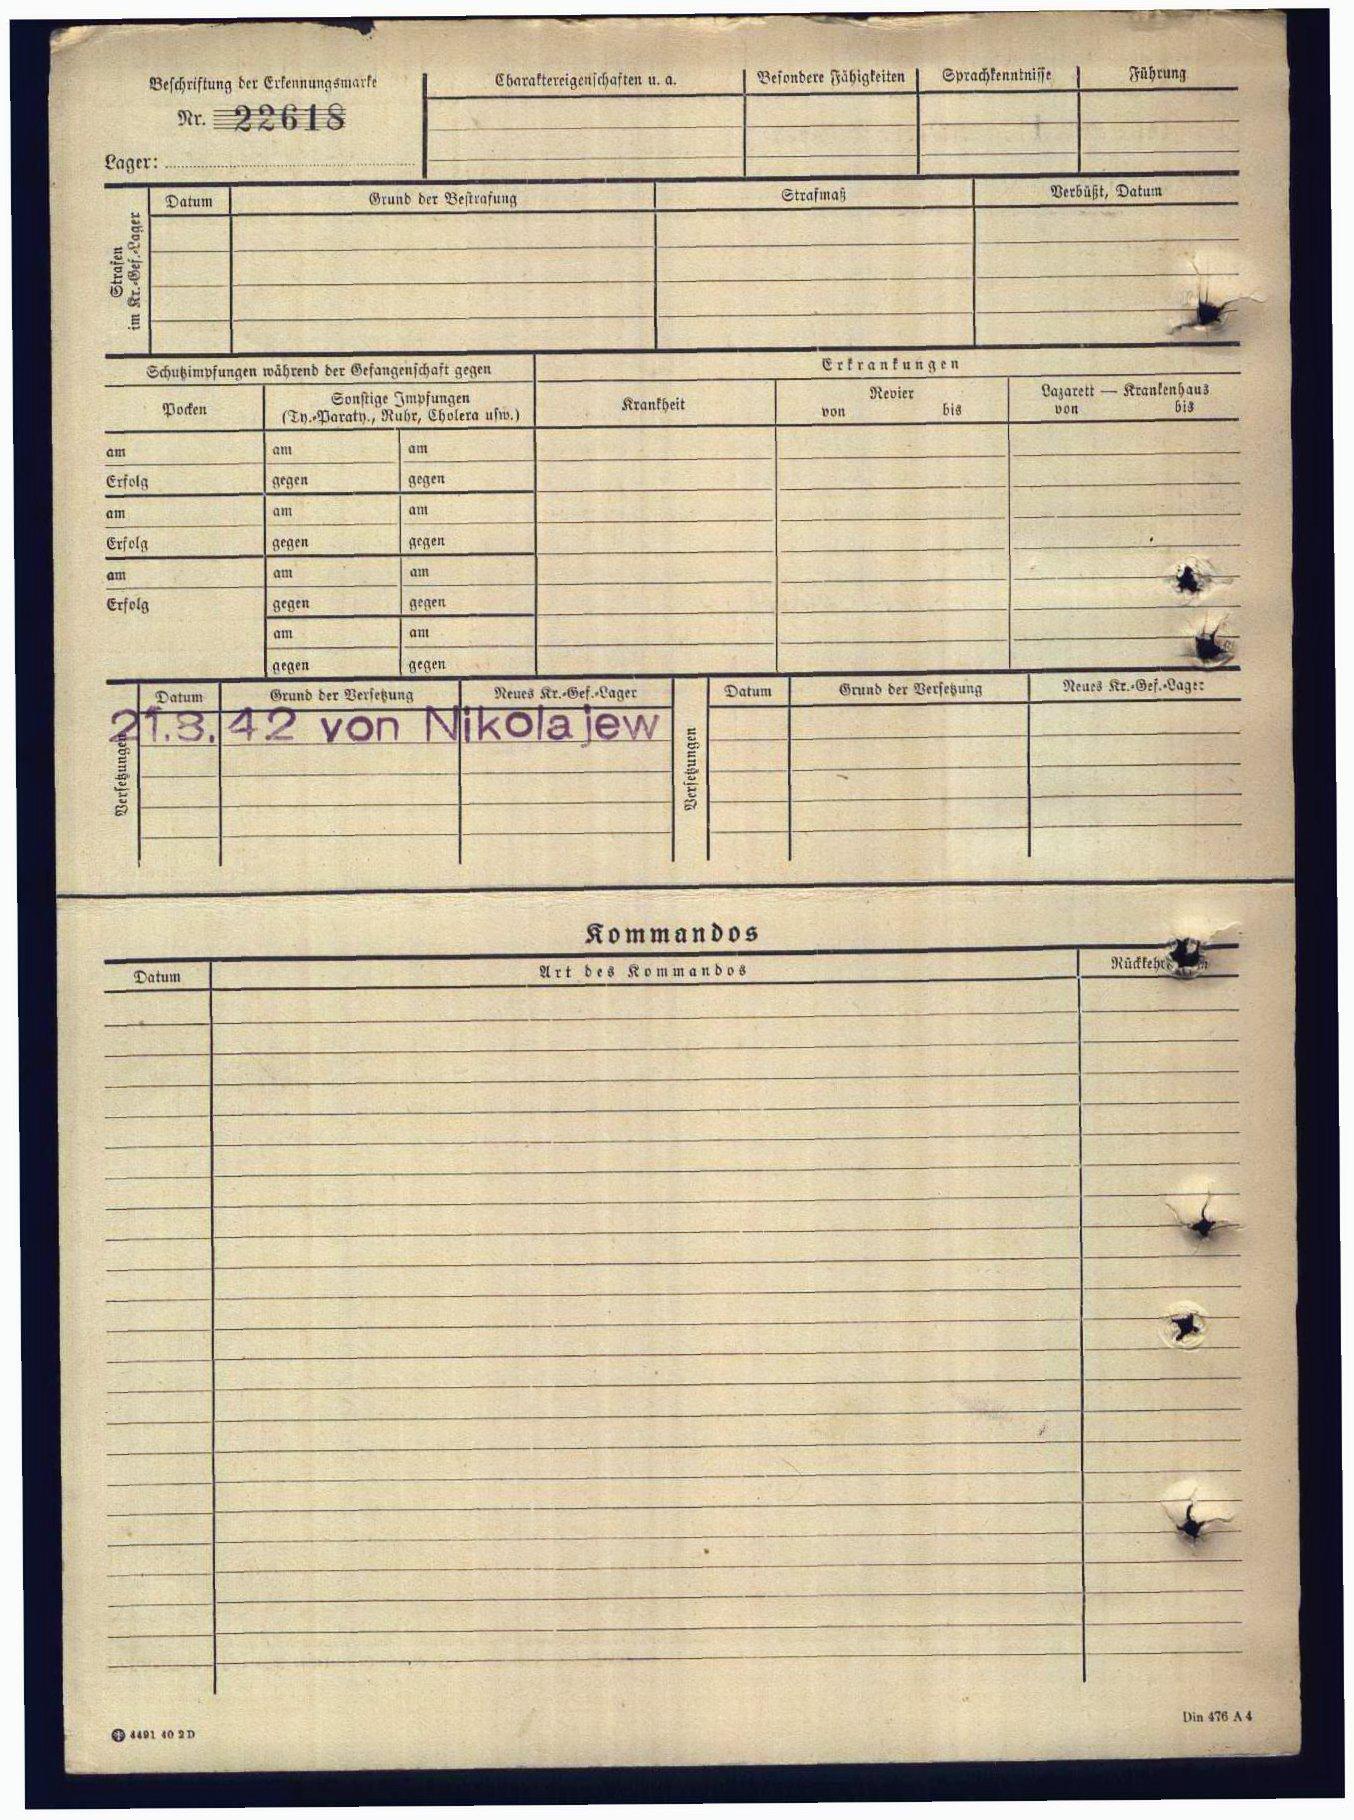 Beschriftung der Erkennungsmarke
Nr. 22618
Lager:
Charaktereigenschaften u. a.
Besondere Fähigkeiten
Sprachkenntnisse
Führung
Strafen
im Kr.-Gef.-Lager
Datum
Grund der Bestrafung
Strafmaß
Verbüßt, Datum
Schutzimpfungen während der Gefangenschaft gegen
Erkrankungen
Pocken
Sonstige Impfungen
(Ty.-Paraty., Ruhr, Cholera usw.)
Krankheit
Revier
von bis
Lazarett — Krankenhaus
von bis
am am am
Erfolg gegen gegen
am am am
Erfolg gegen gegen
am am am
Erfolg gegen gegen
am am
gegen gegen
Versetzungen
Datum
Grund der Versetzung
Neues Kr.-Gef.-Lager
21.3.42 von Nikolajew
Versetzungen
Datum
Grund der Versetzung
Neues Kr.-Gef.-Lager
Kommandos
Datum
Art des Kommandos
4491 40 2 D
Din 476 A 4